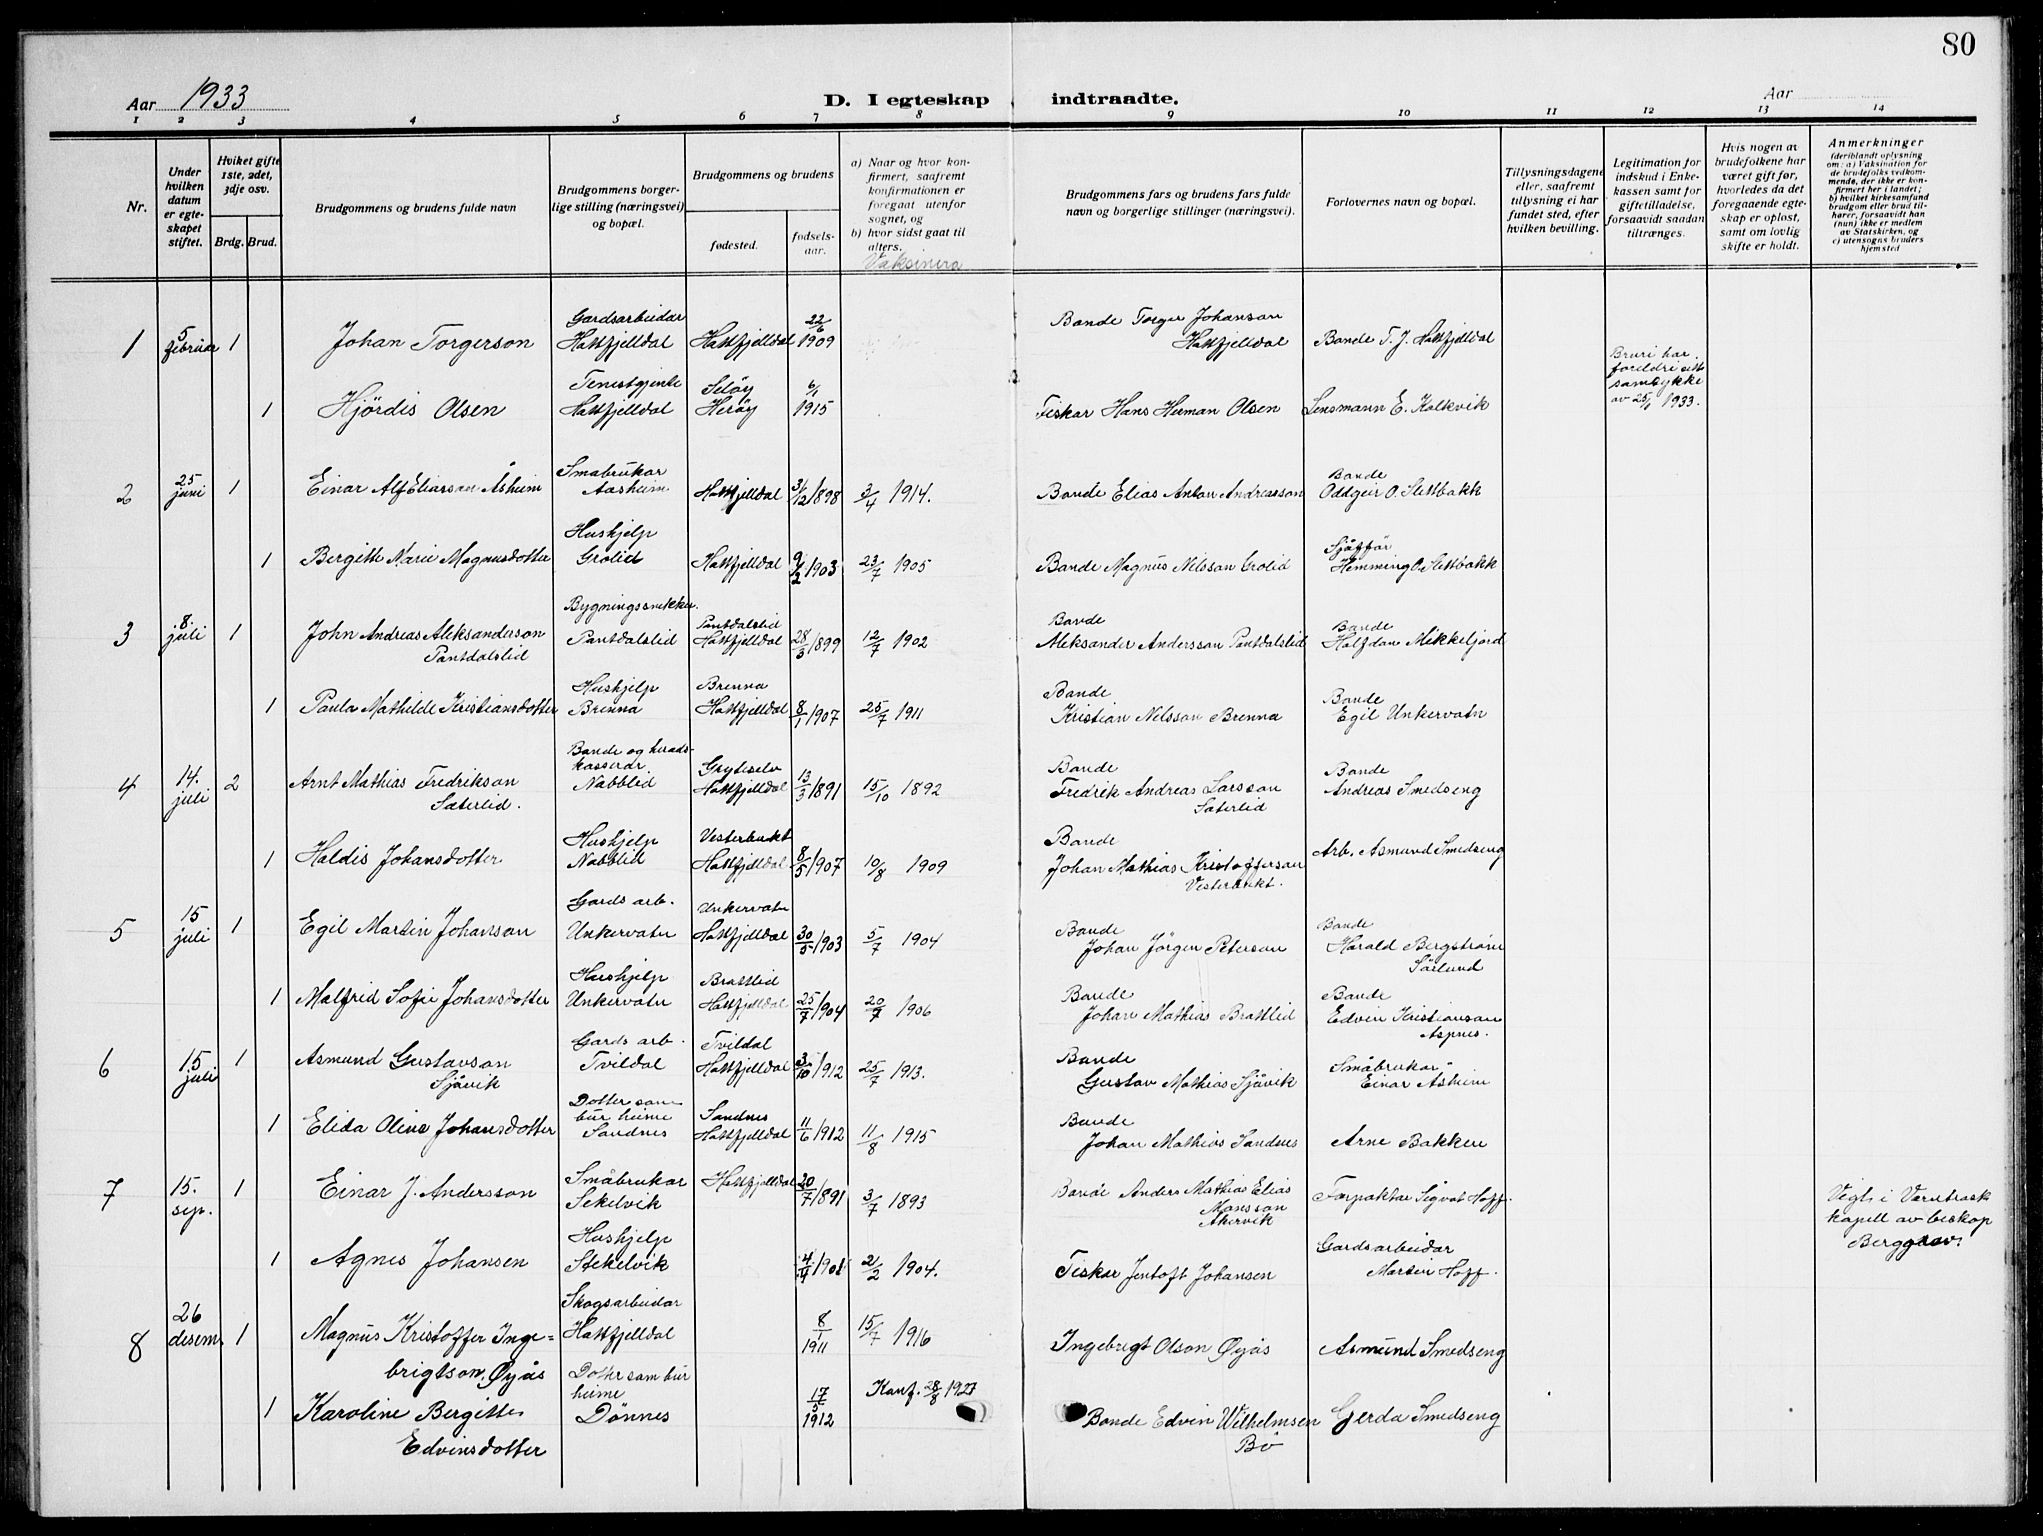 80
Aar 1933
D. I egteskap indtraadte.
Aar
1 2 3 4 5 6 7 8 9 10 11 12 13 14
Nr.
Under hvilken datum er egteskapet stiftet.
Hvilket gifte 1ste, 2det, 3dje osv.
Brdg. Brud.
Brudgommens og brudens fulde navn
Brudgommens borgerlige stilling (næringsvei) og bopæl.
Brudgommens og brudens
fødested.
fødselsaar.
a) Naar og hvor konfirmert, saafremt konfirmationen er foregaat utenfor sognet, og
b) hvor sidst gaat til alters.
Vaksinera
Brudgommens fars og brudens fars fulde navn og borgerlige stillinger (næringsvei).
Forlovernes navn og bopæl.
Tillysningsdagene eller, saafremt tillysning ei har fundet sted, efter hvilken bevilling.
Legitimation for indskud i Enkekassen samt for giftetilladelse, forsaavidt saadan tiltrænges.
Hvis nogen av brudefolkene har været gift før, hvorledes da det foregaaende egteskap er opløst, samt om lovlig skifte er holdt.
Anmerkninger
(deriblandt oplysning om: a) Vaksination for de brudefolks vedkommende, der ikke er konfirmert her i landet; b) hvilket kirkesamfund brudgom eller brud tilhører, forsaavidt han (hun) ikke er medlem av Statskirken, og c) utensogns bruders hjemsted
1 5 februar 1 Johan Torgerson Gardsarbeidar Hattfjelldal Hattfjelldal 22/6 1909 Bonde Torger Johanson Hattfjelldal Bonde T. J. Hattfjelldal
Bruri har foreldre sitt samtykke av 25/1 1933.
1 Hjördis Olsen Tenestgjente Hattfjelldal Seløy Herøy 6/1 1915 Fiskar Hans Herman Olsen Lensmann E. Kalkvik
2 25 juni 1 Einar Alf Eliasson Åsheim Småbrukar Aasheim Hattfjelldal 31/12 1898 3/4 1914. Bonde Elias Anton Andreasson Bonde Oddgeir O. Slettbakk
1 Bergitte Marie Magnusdotter Hushjelp Grolid Hattfjelldal 9/2 1903 23/7 1905 Bonde Magnus Nilsson Grolid Sjåffør Hemming O. Slettbakk
3 8. juli 1 John Andreas Aleksanderson Pantdalslid Bygningssnikker. Pantdalslid Pantdalslid Hattfjelldal 28/3 1899 12/7 1902 Bonde Aleksander Andersson Pantdalslid Bonde Halfdan Mikkeljord
1 Paula Mathilde Kristiansdotter Hushjelp Brenna Brenna Hattfjelldal 8/1 1907 25/7 1911 Bonde Kristian Nilsson Brenna Bonde Egil Unkervatn
4 14. juli 2 Arnt Mathias Fredrikson Sæterlid. Bonde og heradskasserar Nabblid Grytselv Hattfjelldal 13/3 1891 15/10 1892 Bonde Fredrik Andreas Larsson Sæterlid Bonde Andreas Smedseng
1 Haldis Johansdotter Hushjelp Nabblid Vesterbukt Hattfjelldal 8/5 1907 10/8 1909 Bonde Johan Mathias Kristofferson Vesterbukt. Arb. Asmund Smedseng
5 15 juli 1 Egil Martin Johanson Gards arb. Unkervatn Unkervatn Hattfjelldal 30/5 1903 5/7 1904 Bonde Johan Jörgen Peterson Bonde Harald Bergström Sörlund
1 Malfrid Sofie Johansdotter Hushjelp Unkervatn Brattlid Hattfjelldal 25/7 1904 20/7 1906 Bonde Johan Mathias Brattlid Bonde Edvin Kristianson Aspnes.
6 15. juli 1 Asmund Gustavson Sjåvik Gards arb. Tvildal Tvildal Hattfjelldal 3/10 1912 25/7 1913. Bonde Gustav Mathias Sjåvik Småbrukar Einar Asheim
1 Elida Oline Johansdotter Dotter som bur heime Sandnes Sandnes Hattfjelldal 11/6 1912 11/8 1915 Bonde Johan Mathias Sandnes Arne Bakken
7 15. sep. 1 Einar J. Andersson Småbrukar Sekelvik Hattfjelldal 20/7 1891 3/7 1893 Bonde Anders Mathias Elias Monsson Akervik Forpaktar Sigvat Hoff.
Vigt i Varntresk kapell av biskop Berggrav.
1 Agnes Johansen Hushjelp Stekelvik 1901 2/2 1904. Fiskar Jentoft Johansen Gardsarbeidar Martin Hoff.
8 26 desem. 1 Magnus Kristoffer Ingebrigtson Øyås Skogsarbeidar Hattfjelldal 8/1 1911 15/7 1916 Ingebrigt Olson Øyås Asmund Smedseng
1 Karoline Bergitte Edvinsdotter Dotter som bur heime Dønnes 17/5 1912 Konf. 28/8 1927 Bonde Edvin Wilhelmsen Bö Gerda Smedseng